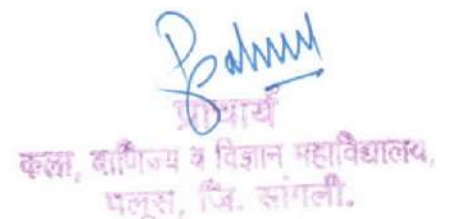 प्राचार्य
कला, वाणिज्य व विज्ञान महाविद्यालय,
पलूस, जि. सांगली.